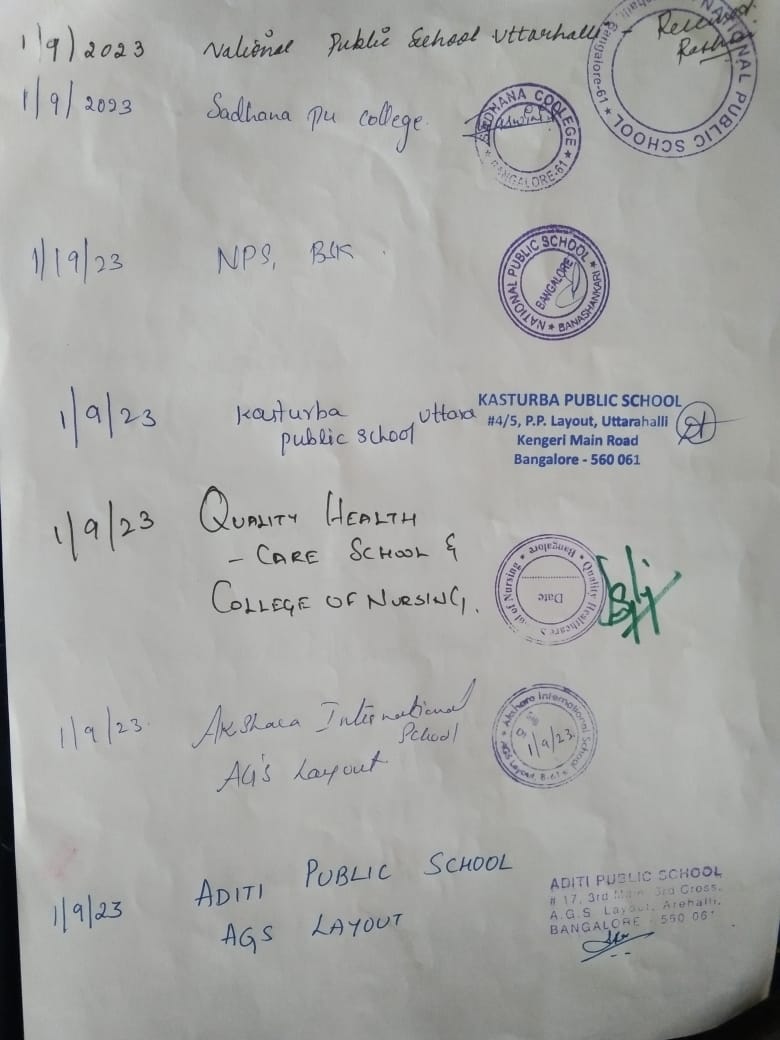 1/9/2023 National Public School Uttarhalli - Received.
NATIONAL PUBLIC SCHOOL ★ Bangalore-61 ★
1/9/2023 Sadhana Pu college.
SADHANA COOLEGE ★ BANGALORE-61 ★
1/19/23 NPS, BSK.
NATIONAL PUBLIC SCHOOL ★ BANASHANKARI ★
BANGALORE
1/9/23 Kasturba
public school Uttara
KASTURBA PUBLIC SCHOOL
#4/5, P.P. Layout, Uttarahalli
Kengeri Main Road
Bangalore - 560 061
1/9/23 QUALITY HEALTH
- CARE SCHOOL &
COLLEGE OF NURSING.
Quality Healthcare S ol of Nursing • Bangalore •
Date
1/9/23. Akshara International
School
AG's Layout
Akshara International School ★ AGS Layout, B-61 ★
1/9/23.
1/9/23 ADITI PUBLIC SCHOOL
AGS LAYOUT
ADITI PUBLIC SCHOOL
# 17, 3rd Main, 3rd Cross,
A.G.S Layout, Arehalli,
BANGALORE - 560 061